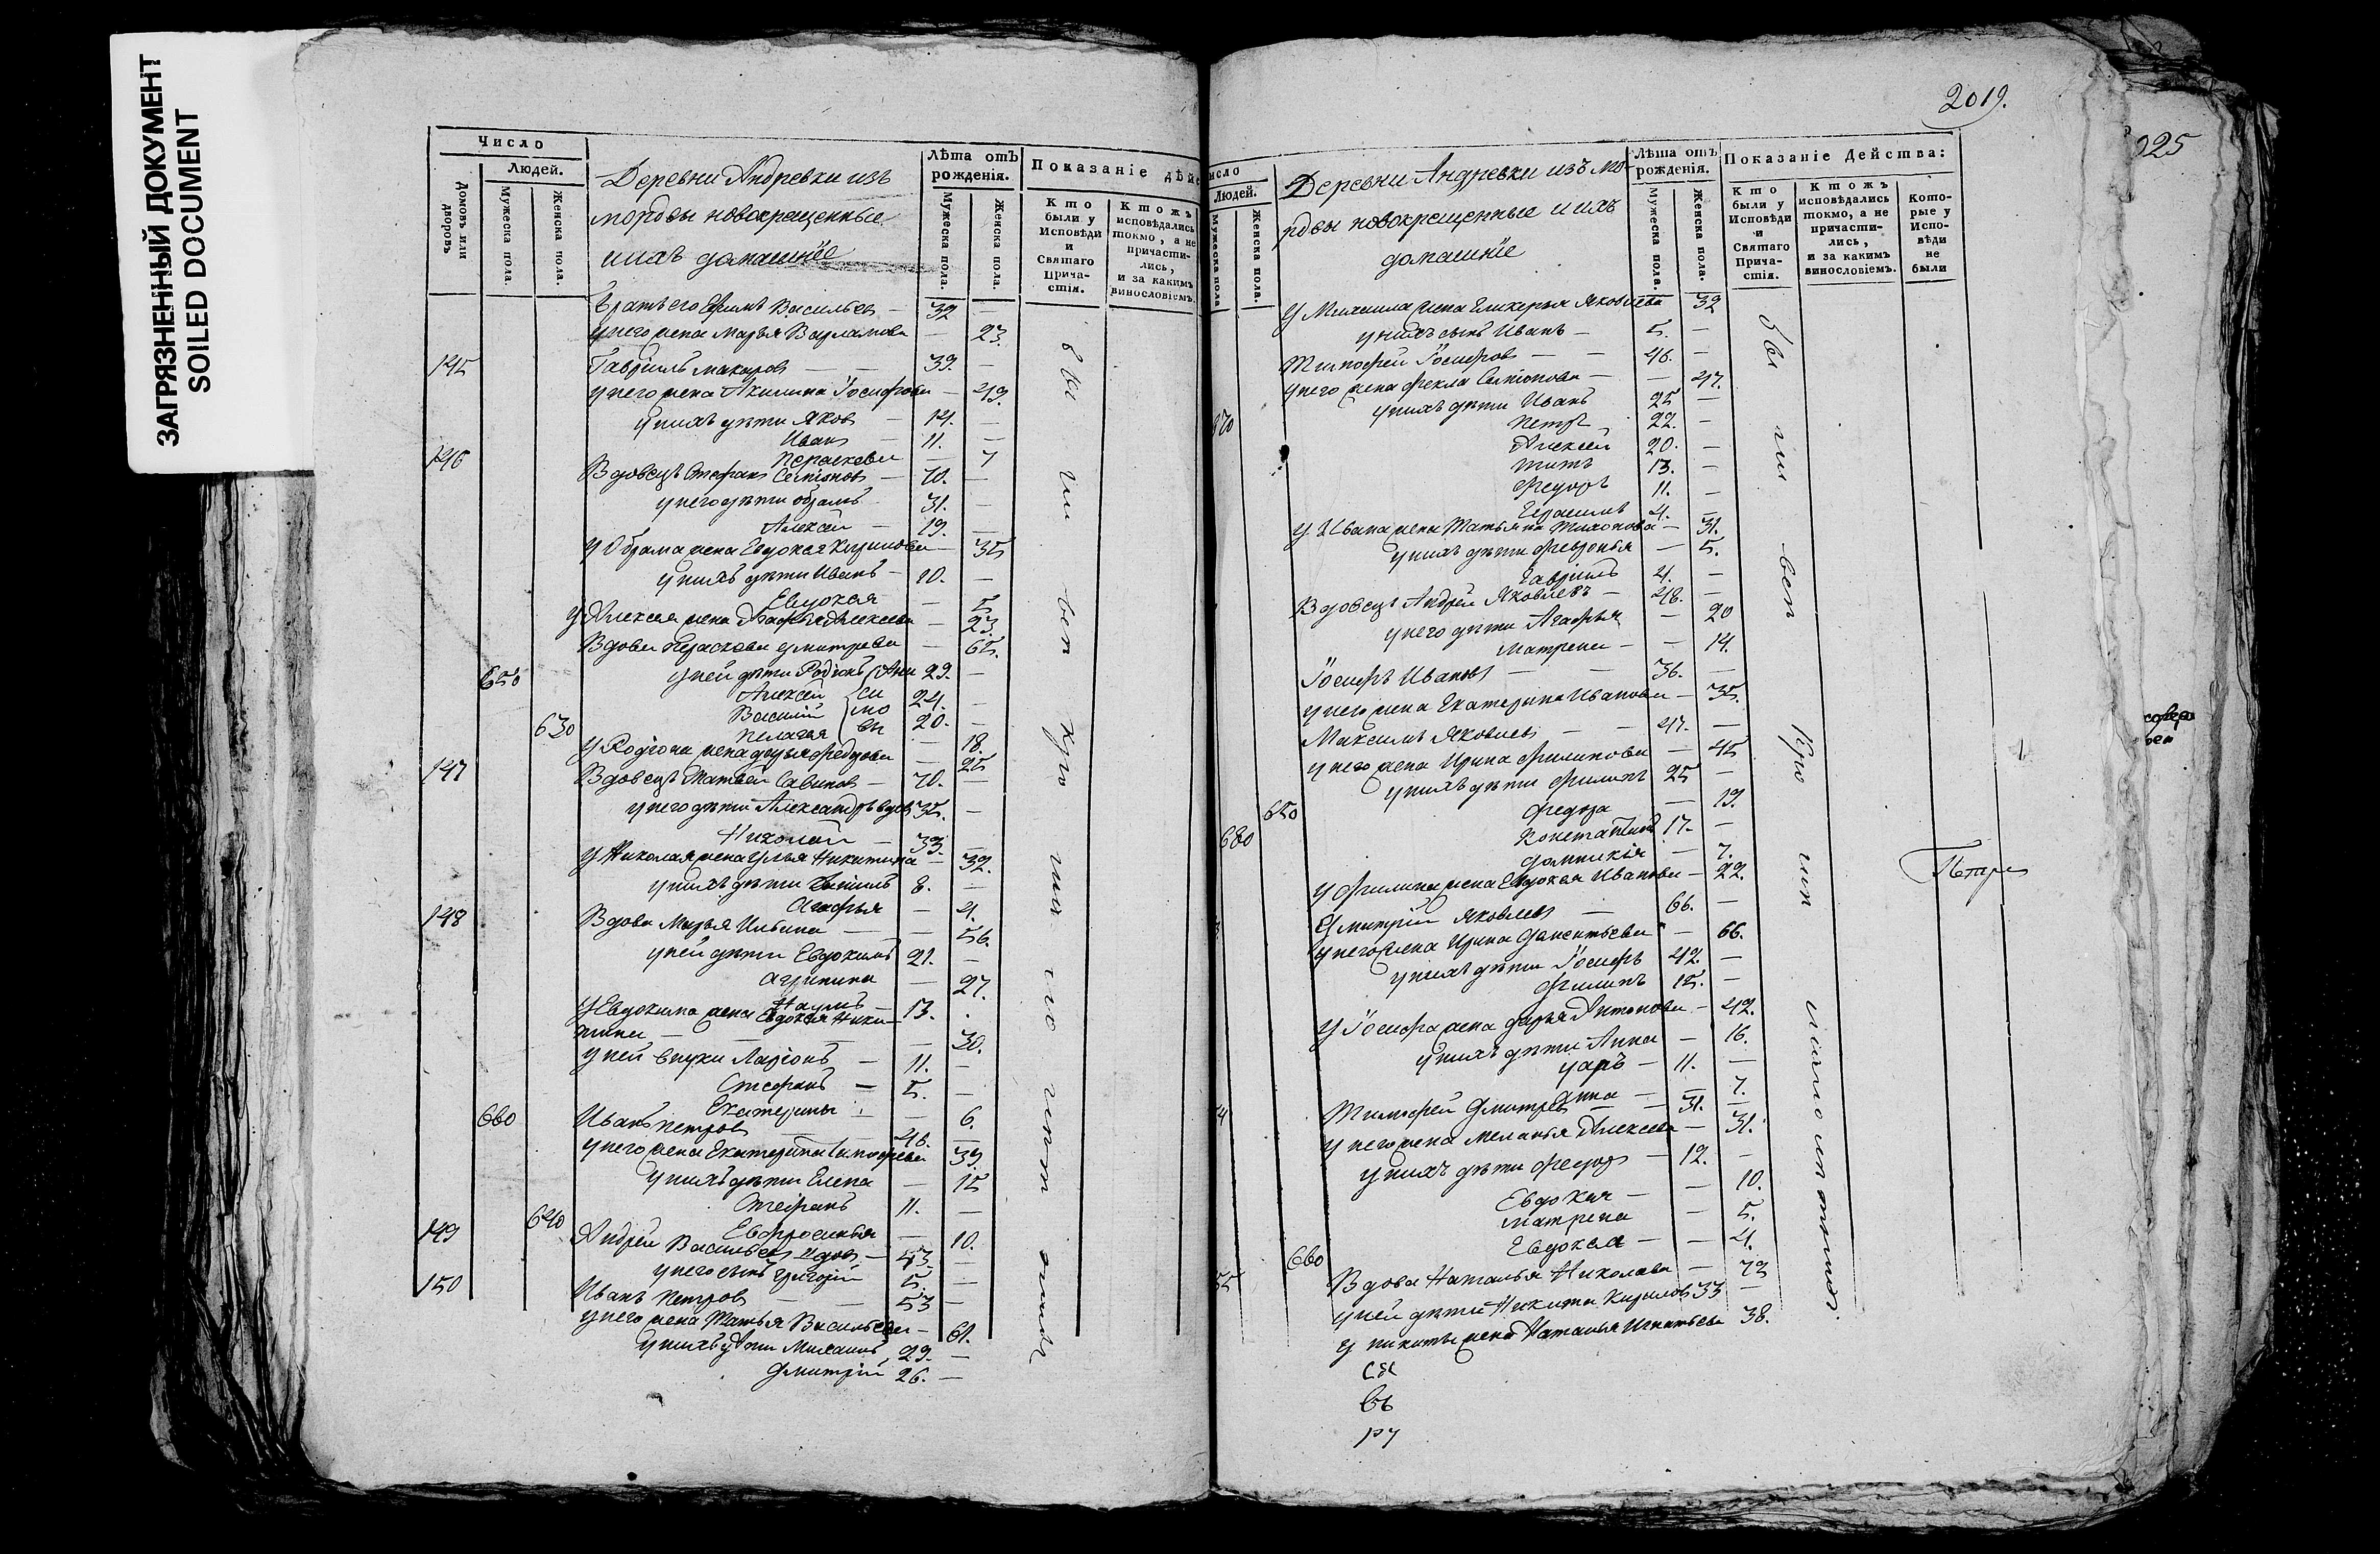 ЗАГРЯЗНЕННЫЙ ДОКУМЕНТ
SOILED DOCUMENT
Число
Людей.
Домовъ или дворовъ
Мужеска пола.
Женска пола.
Деревни Андревки изъ
мордвы новокрещенные
и ихъ домашнїе
Лѣта отъ рожденія.
Мужеска пола.
Женска пола.
Показаніе дѣй
Кто были у Исповѣди и Святаго Прича-стія.
Ктожъ исповѣдались токмо, а не причасти-лись, и за какимъ винословіемъ.
братъ его Ефимъ Васильевъ — 32 —
у него жена Марья Варламова — 23.
145 Гаврїилъ Макаровъ — 39. —
у него жена Акилина Їосифова — 49.
у нихъ дѣти Яковъ — 14. —
Иванъ — 11. —
Параскева — 7
146 Вдовецъ Стефанъ Семїоновъ — 70. —
у него дѣти Обрамъ 31. —
Алексѣй — 19. —
у Обрама жена Евдокея Кирилова — 35
у нихъ дѣти Иванъ — 10. —
Евдокея — 5.
у Алексея жена Агафья Алексеева — 23.
Вдова Параскева Дмитрева — 65.
650 у ней дѣти Родїонъ 29. —
Алексѣй 24. —
Василїй 20. —
630 Пелагея — 18.
у Родїона жена Дарья Федорова — 25
147 Вдовецъ Матвей Савиновъ — 70. —
у него дѣти Александръ вдов 35. —
Николай — 33. —
у Николая жена Улья Никитина — 32.
у нихъ дѣти 8. —
Агафья — 4.
148 Вдова Марья Ильина — 56.
у ней дѣти Евдокимъ 21. —
Агрипина — 27.
Наумъ — 13.
у Евдокима жена Евдокея Ники-
тина — 30.
у ней внуки Ларїонъ — 11. —
Стефанъ — 5. —
Екатерины — 6.
660 Иванъ Петровъ — 46. —
у него жена Екатерина Тимофеева 39.
у нихъ дѣти Елена — 15
Стефанъ 11. —
640 Евфросинья — 10.
149 Андрей Васильевъ вдов — 43. —
у него сынъ Григорїй 5. —
150 Иванъ Петровъ — 53 —
у него жена Татья Васильева — 61.
у нихъ дѣти Михаилъ 29. —
Дмитрїй 26. —
2019.
025
исло
Людей.
Мужеска пола
Женска пола.
Деревни Андревки изъ мо-
рдвы новокрещенные и ихъ
домашнїе
Лѣта отъ рожденія.
Мужеска пола.
Женска пола.
Показаніе Действа:
Кто были у Исповѣди и Святаго Прича-стія.
Ктожъ исповѣдались токмо, а не причасти-лись, и за какимъ винословіемъ.
Кото-рые у Испо-вѣди не были
У Михаила жена Гликерья Яковлева 32
у нихъ сынъ Иванъ — 5. —
Тимофей Їосифовъ — 46. —
у него жена Фекла Семїонова — 47.
у нихъ дѣти Иванъ 25 —
670 Петръ 22. —
Алексѣй 20. —
Титъ 13. —
Федоръ 11. —
Герасимъ 4. —
у Ивана жена Татьяна Тихонова — 31.
у нихъ дѣти Февронья — 5.
Гаврїилъ 4. —
Вдовецъ Андрей Яковлевъ — 48. —
у него дѣти Агафья — 20
Матрена — 14.
Їосифъ Ивановъ — 36. —
у него жена Екатерина Иванова — 35.
Максимъ Яковлевъ — 47. —
у него жена Ирина Филипова — 45
у нихъ дѣти Филипъ 25 —
650 Федора — 19.
680 Константинъ 17. —
Домникїя — 7.
у Филипа жена Евдокея Иванова — 22.
Дмитрїй Яковлевъ — 66. —
у него жена Ирина — 66.
у нихъ дѣти Їосифъ 42. —
Филипъ 15. —
у Їосифа жена Дарья Антонова — 42.
у нихъ дѣти Анна — 16.
Уаръ — 11. —
Анна — 7.
4 Тимофей Дмитревъ 31. —
у него жена Меланья Алексеева — 31.
у нихъ дѣти Федоръ — 12. —
Евдокея — 10.
Матрена — 5.
Евдокея — 4.
660
55 Вдова Наталья Николаева — 73
у ней дѣти Никита Кириловъ 33 —
у Никиты жена Наталья Игнатьева 38.
Петре
Съ
въ
ру